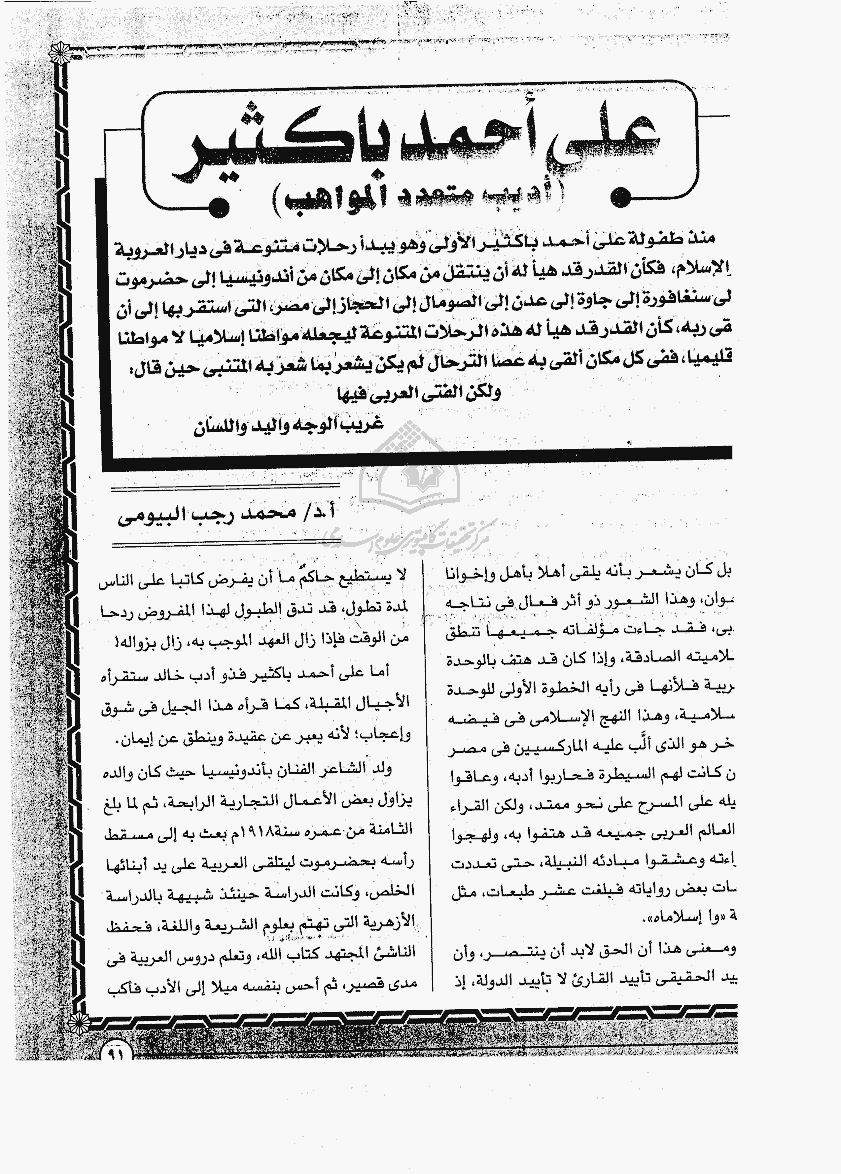 على أحمد باكثير
(أديب متعدد المواهب)
منذ طفولة على أحمد باكثير الأولى وهو يبدأ رحلات متنوعة فى ديار العروبة
الإسلام، فكأن القدر قد هيأ له أن ينتقل من مكان إلى مكان من أندونيسيا إلى حضرموت
لى سنغافورة إلى جاوة إلى عدن إلى الصومال إلى الحجاز إلى مصر، التى استقر بها إلى أن
قى ربه، كأن القدر قد هيأ له هذه الرحلات المتنوعة ليجعله مواطنا إسلاميا لا مواطنا
قليميا، ففى كل مكان ألقى به عصا الترحال لم يكن يشعر بما شعر به المتنبى حين قال:
ولكن الفتى العربى فيها
غريب الوجه واليد واللسان
أ.د/ محمد رجب البيومى
بل كان يشعر بأنه يلقى أهلا بأهل وإخوانا
ـوان، وهذا الشعور ذو أثر فعال فى نتاجه
بى، فقد جاءت مؤلفاته جميعها تنطق
ـلاميته الصادقة، وإذا كان قد هتف بالوحدة
ربية فلأنها فى رأيه الخطوة الأولى للوحدة
ـسلامية، وهذا النهج الإسلامى فى فيضه
خر هو الذى ألَّب عليه الماركسيين فى مصر
ن كانت لهم السيطرة فحاربوا أدبه، وعاقوا
يله على المسرح على نحو ممتد، ولكن القراء
العالم العربى جميعه قد هتفوا به، ولهجوا
اءته وعشقوا مبادئه النبيلة، حتى تعددت
ـات بعض رواياته فبلغت عشر طبعات، مثل
ة «وا إسلاماه».
ومعنى هذا أن الحق لابد أن ينتصر، وأن
ييد الحقيقى تأييد القارئ لا تأييد الدولة، إذ
لا يستطيع حاكمٌ ما أن يفرض كاتبا على الناس
لمدة تطول، قد تدق الطبول لهذا المفروض ردحا
من الوقت فإذا زال العهد الموجب به، زال بزواله!
أما على أحمد باكثير فذو أدب خالد ستقرأه
الأجيال المقبلة، كما قرأه هذا الجيل فى شوق
وإعجاب؛ لأنه يعبر عن عقيدة وينطق عن إيمان.
ولد الشاعر الفنان بأندونيسيا حيث كان والده
يزاول بعض الأعمال التجارية الرابحة، ثم لما بلغ
الثامنة من عمره سنة ١٩١٨م بعث به إلى مسقط
رأسه بحضرموت ليتلقى العربية على يد أبنائها
الخلص، وكانت الدراسة حينئذ شبيهة بالدراسة
الأزهرية التى تهتم بعلوم الشريعة واللغة، فحفظ
الناشئ المجتهد كتاب الله، وتعلم دروس العربية فى
مدى قصير، ثم أحس بنفسه ميلا إلى الأدب فأكب
٩١